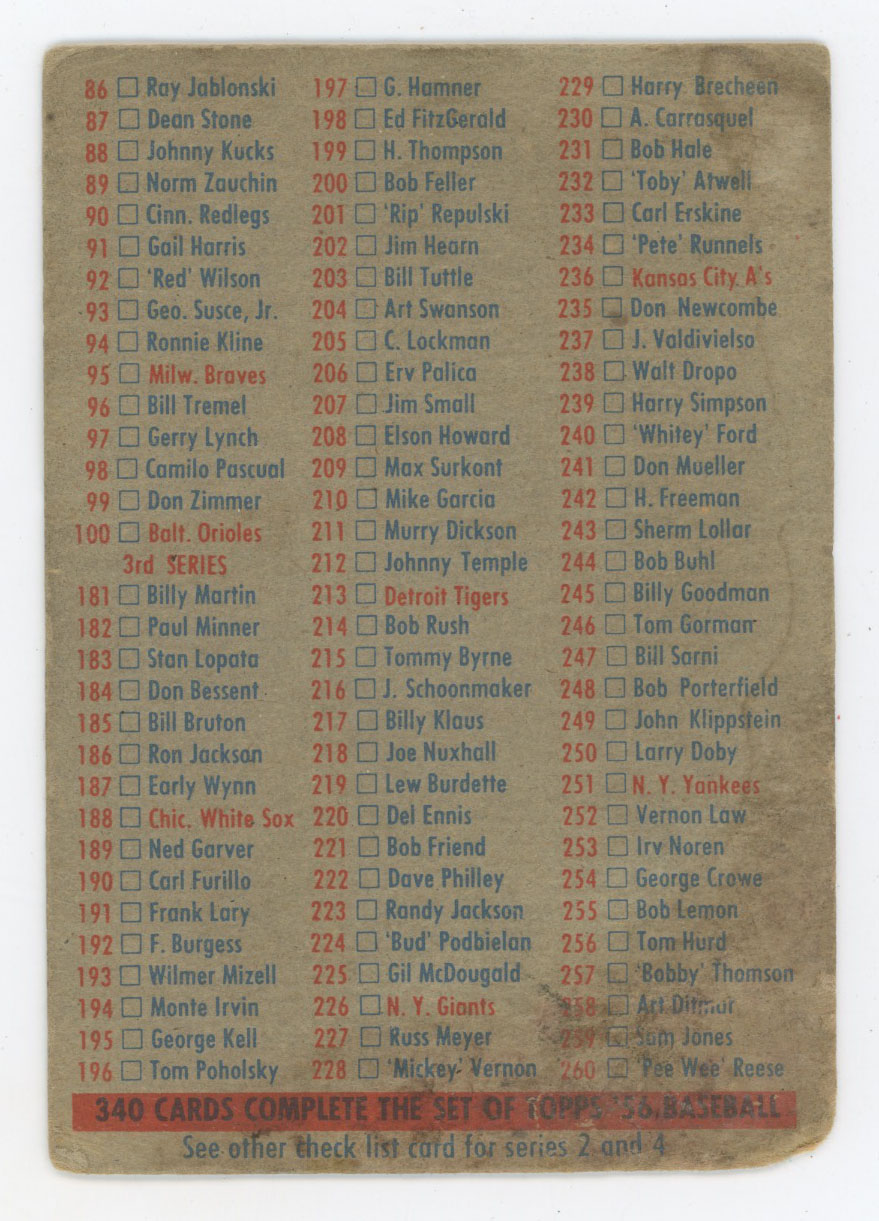 86 Ray Jablonski
87 Dean Stone
88 Johnny Kucks
89 Norm Zauchin
90 Cinn. Redlegs
91 Gail Harris
92 'Red' Wilson
93 Geo. Susce, Jr.
94 Ronnie Kline
95 Milw. Braves
96 Bill Tremel
97 Gerry Lynch
98 Camilo Pascual
99 Don Zimmer
100 Balt. Orioles
3rd SERIES
181 Billy Martin
182 Paul Minner
183 Stan Lopata
184 Don Bessent
185 Bill Bruton
186 Ron Jackson
187 Early Wynn
188 Chic. White Sox
189 Ned Garver
190 Carl Furillo
191 Frank Lary
192 F. Burgess
193 Wilmer Mizell
194 Monte Irvin
195 George Kell
196 Tom Poholsky
197 G. Hamner
198 Ed FitzGerald
199 H. Thompson
200 Bob Feller
201 'Rip' Repulski
202 Jim Hearn
203 Bill Tuttle
204 Art Swanson
205 C. Lockman
206 Erv Palica
207 Jim Small
208 Elson Howard
209 Max Surkont
210 Mike Garcia
211 Murry Dickson
212 Johnny Temple
213 Detroit Tigers
214 Bob Rush
215 Tommy Byrne
216 J. Schoonmaker
217 Billy Klaus
218 Joe Nuxhall
219 Lew Burdette
220 Del Ennis
221 Bob Friend
222 Dave Philley
223 Randy Jackson
224 'Bud' Podbielan
225 Gil McDougald
226 N. Y. Giants
227 Russ Meyer
228 'Mickey' Vernon
229 Harry Brecheen
230 A. Carrasquel
231 Bob Hale
232 'Toby' Atwell
233 Carl Erskine
234 'Pete' Runnels
236 Kansas City A's
235 Don Newcombe
237 J. Valdivielso
238 Walt Dropo
239 Harry Simpson
240 'Whitey' Ford
241 Don Mueller
242 H. Freeman
243 Sherm Lollar
244 Bob Buhl
245 Billy Goodman
246 Tom Gorman
247 Bill Sarni
248 Bob Porterfield
249 John Klippstein
250 Larry Doby
251 N. Y. Yankees
252 Vernon Law
253 Irv Noren
254 George Crowe
255 Bob Lemon
256 Tom Hurd
257 'Bobby' Thomson
258 Art Ditmar
259 Sam Jones
260 'Pee Wee' Reese
340 CARDS COMPLETE THE SET OF TOPPS '56 BASEBALL
See other check list card for series 2 and 4